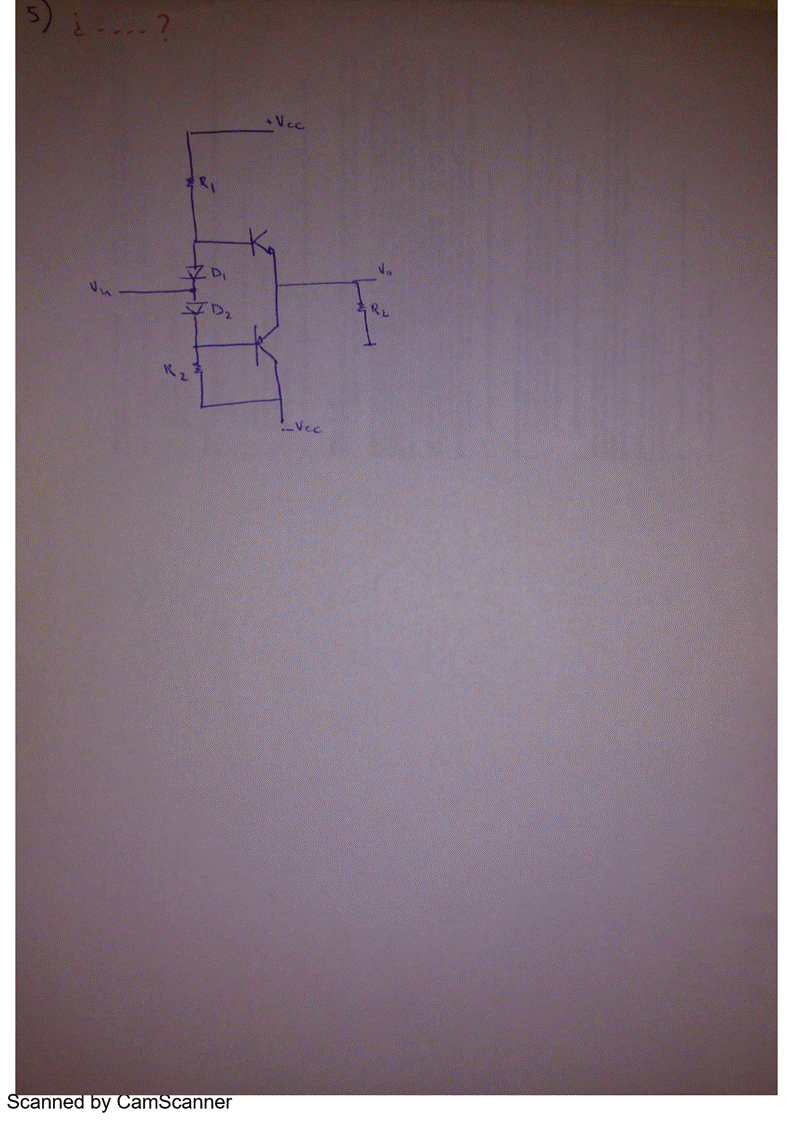 5) ¿ ----- ?
+Vcc
R1
D1
Vin
Vo
D2
RL
R2
-Vcc
Scanned by CamScanner